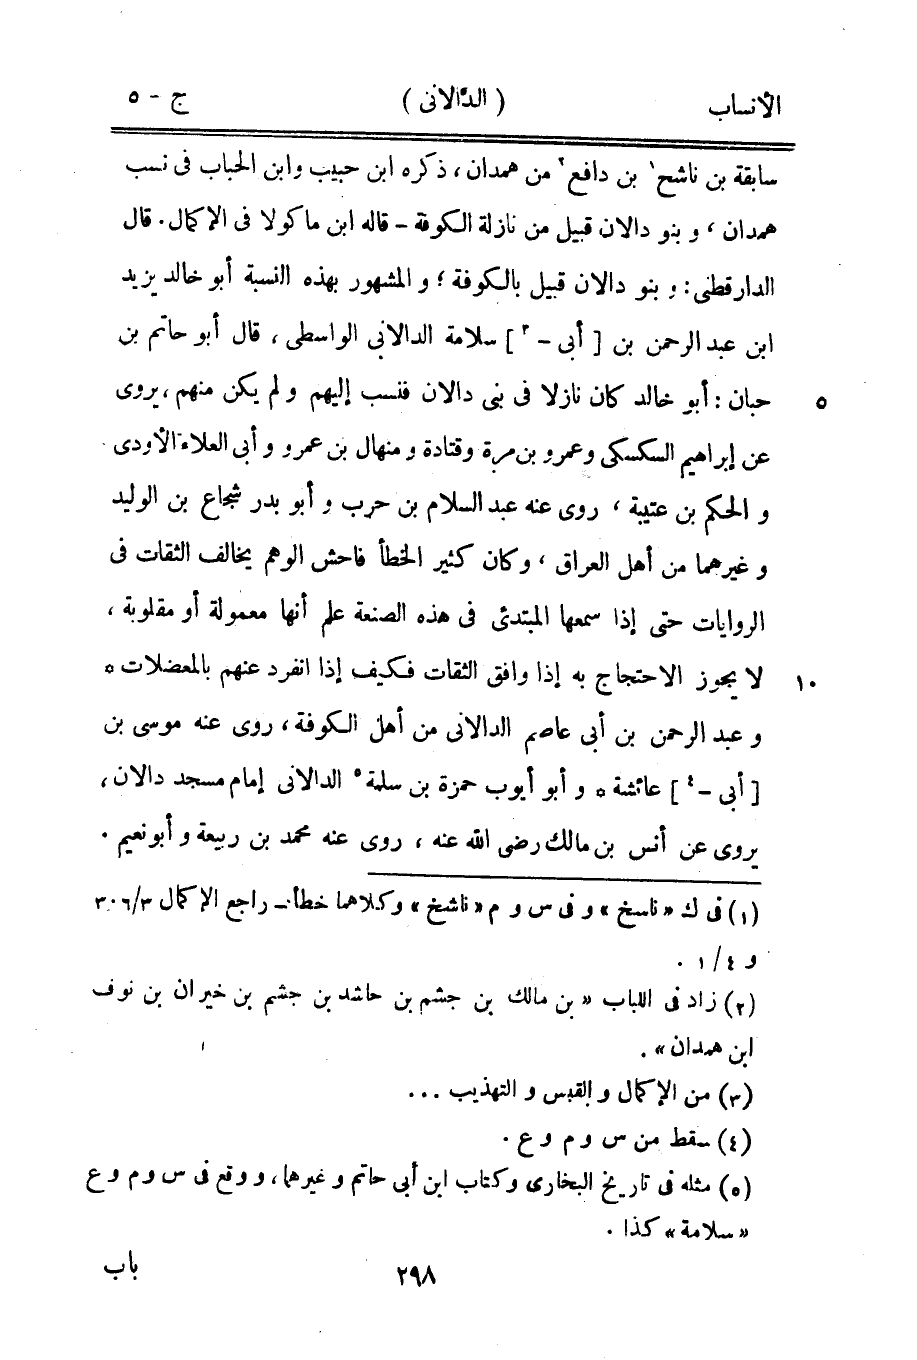 الأنساب ( الدالانى ) ج - ٥
سابقة بن ناشح١ بن دافع٢ من همدان ، ذكره ابن حبيب وابن الحباب فى نسب
همدان ، و بنو دالان قبيل من نازلة الكوفة - قاله ابن ماكولا فى الإكمال . قال
الدارقطنى : و بنو دالان قبيل بالكوفة ؛ و المشهور بهذه النسبة أبو خالد يزيد
ابن عبد الرحمن بن [ أبى -٣ ] سلامة الدالانى الواسطى ، قال أبو حاتم بن
حبان : أبو خالد كان نازلا فى بنى دالان فنسب إليهم و لم يكن منهم ، يروى ٥
عن إبراهيم السكسكى وعمرو بن مرة وقتادة و منهال بن عمرو و أبى العلاء الأودى
و الحكم بن عتيبة ، روى عنه عبد السلام بن حرب و أبو بدر شجاع بن الوليد
و غيرهما من أهل العراق ، وكان كثير الخطأ فاحش الوهم يخالف الثقات فى
الروايات حتى إذا سمعها المبتدئ فى هذه الصنعة علم أنها معمولة أو مقلوبة ،
لا يجوز الاحتجاج به إذا وافق الثقات فكيف إذا انفرد عنهم بالمعضلات ه ١٠
و عبد الرحمن بن أبى عاصم الدالانى من أهل الكوفة ، روى عنه موسى بن
[ أبى -٤ ] عائشة ه و أبو أيوب حمزة بن سلمة٥ الدالانى إمام مسجد دالان ،
يروى عن أنس بن مالك رضى الله عنه ، روى عنه محمد بن ربيعة و أبو نعيم .
(١) فى ك « ناسخ » و فى س و م « ناشخ » وكلاهما خطأ - راجع الإكمال ٣٠٦/٣
و ١/٤ .
(٢) زاد فى اللباب « بن مالك بن جشم بن حاشد بن جشم بن خيران بن نوف
ابن همدان » .
(٣) من الإكمال و القبس و التهذيب ...
(٤) سقط من س و م و ع .
(٥) مثله فى تاريخ البخارى وكتاب ابن أبى حاتم و غيرهما ، و وقع فى س و م و ع
« سلامة » كذا .
٢٩٨ باب